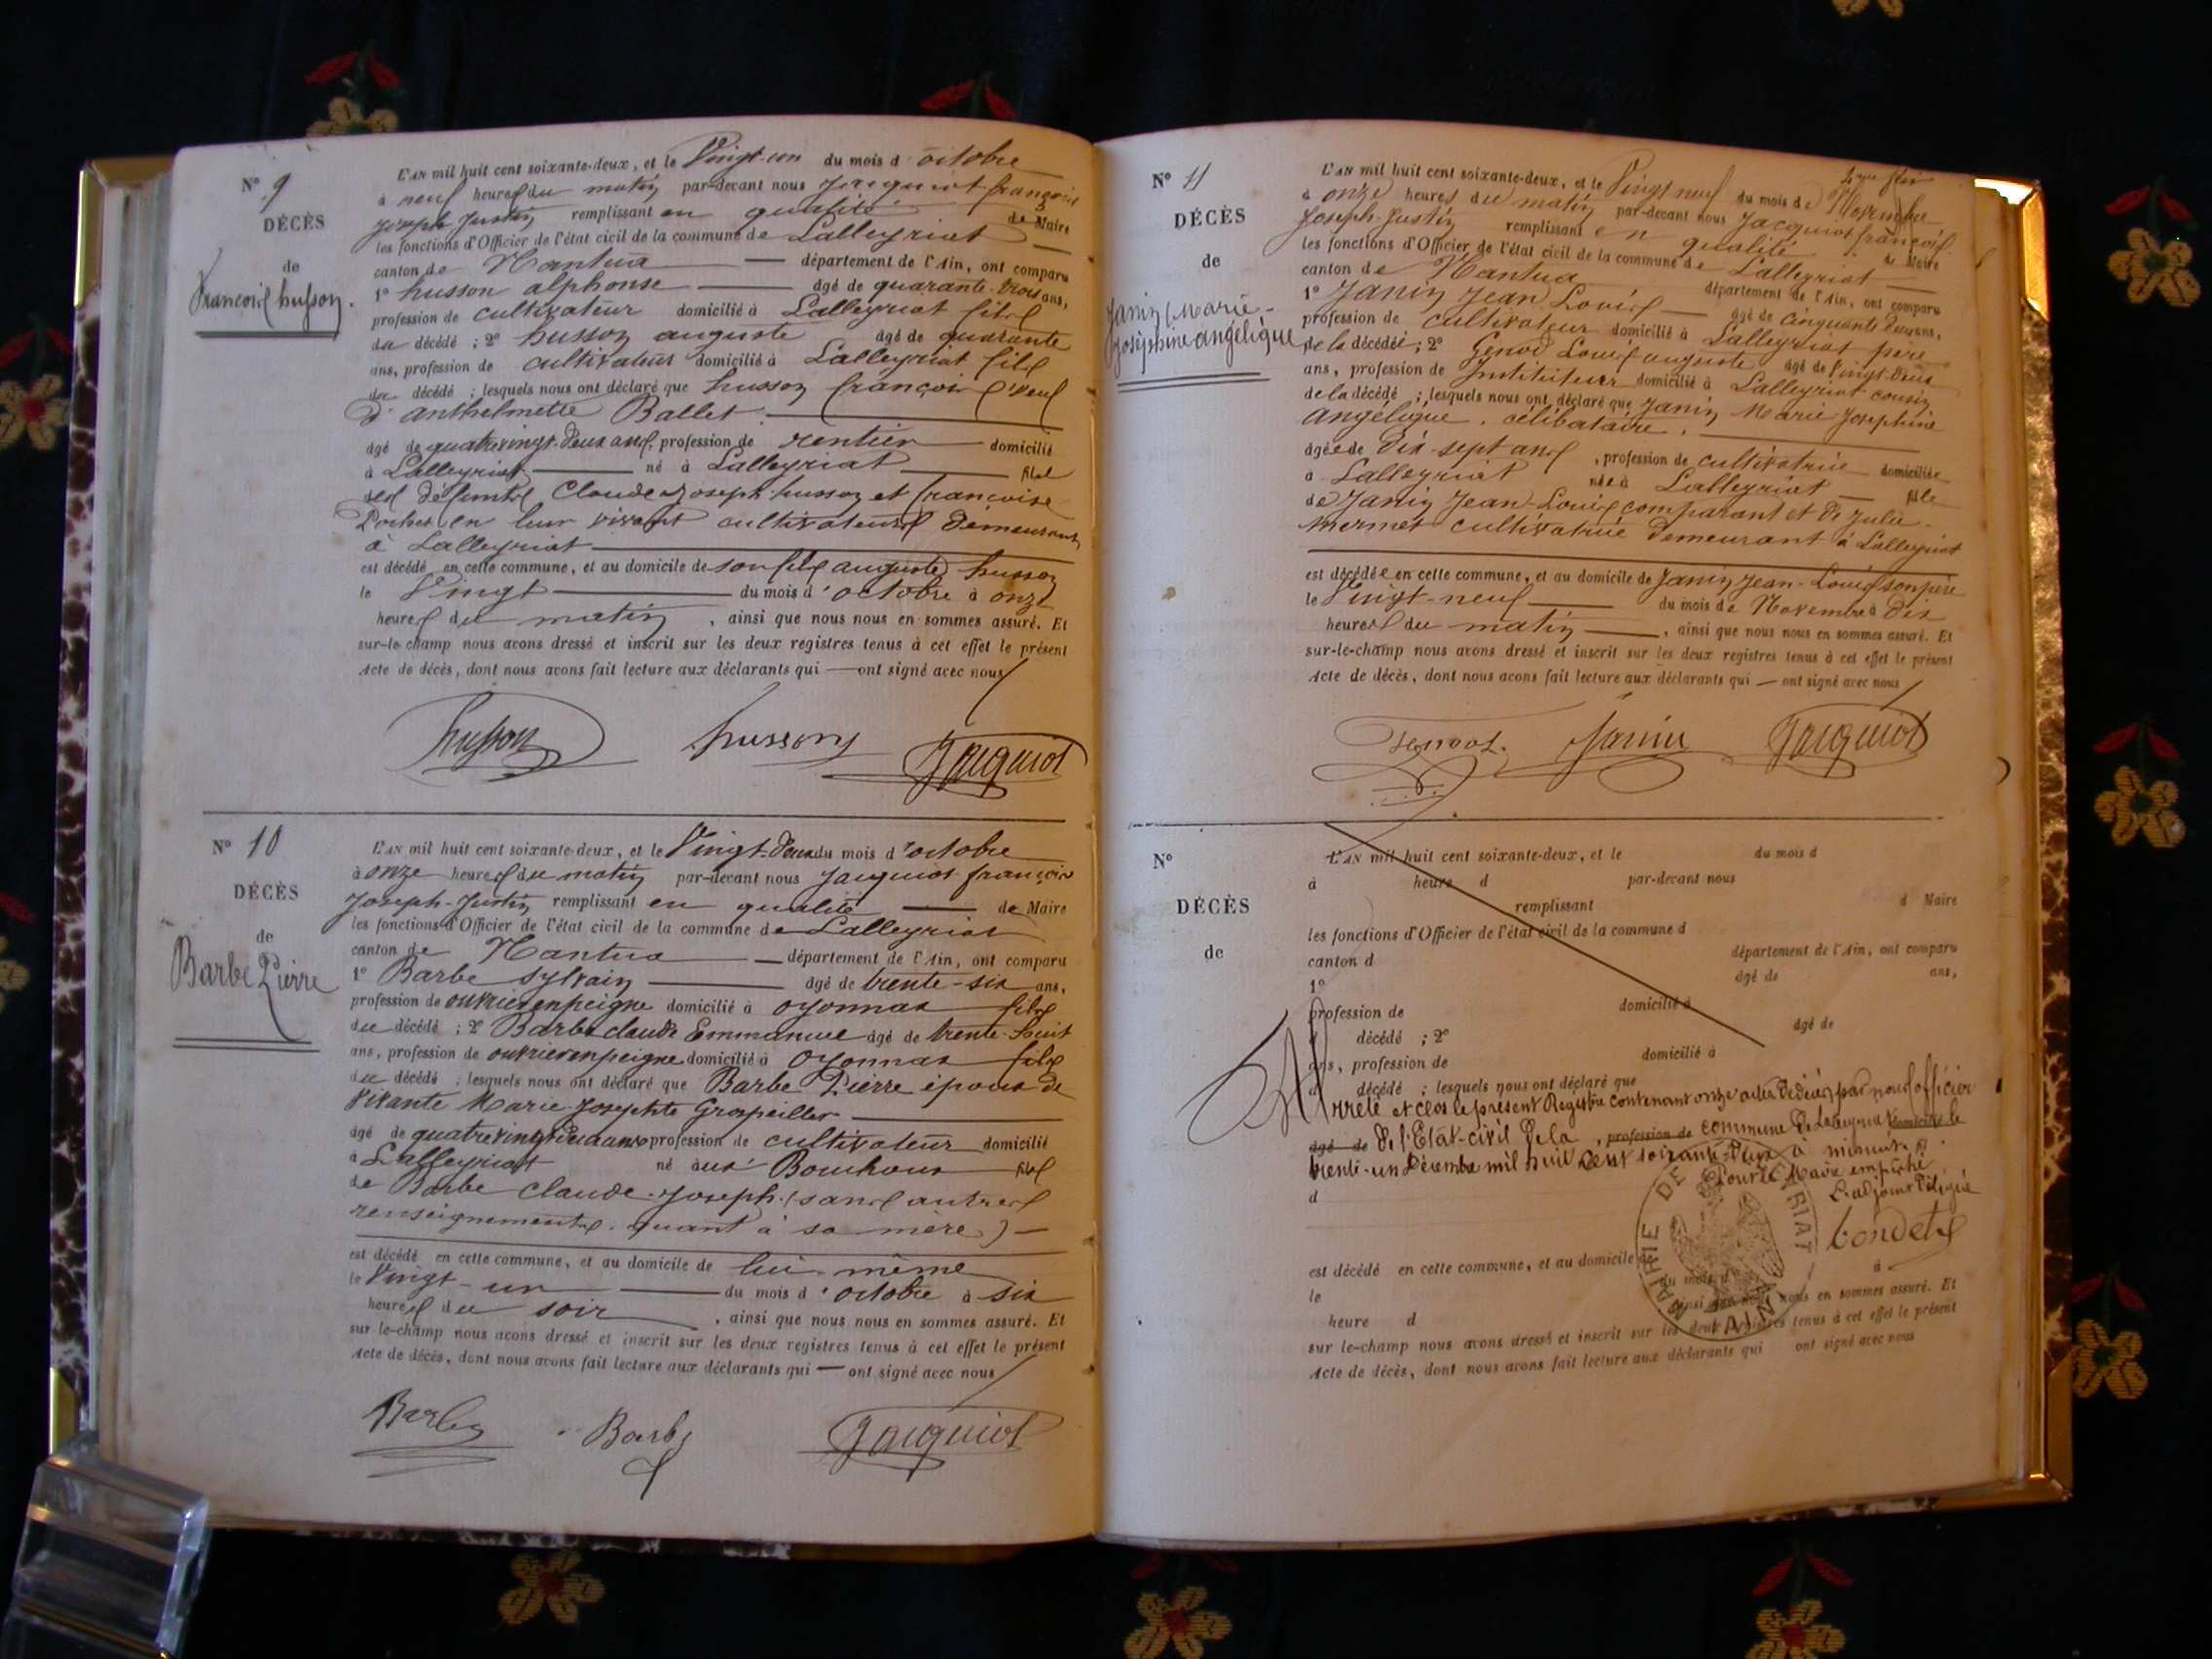 N° 9
DÉCÈS
de
Francois husson.
L'AN mil huit cent soixante-deux, et le Vingt-un du mois d'octobre
à neuf heures du matin par-devant nous Jacquiot françois
joseph Justin remplissant en qualité de Maire
les fonctions d'Officier de l'état civil de la commune de Lalleyriat
canton de Nantua département de l'Ain, ont comparu
1° husson alphonse âgé de quarante-trois ans,
profession de cultivateur domicilié à Lalleyriat fils
du décédé ; 2° husson auguste âgé de quarante
ans, profession de cultivateur domicilié à Lalleyriat fils
du décédé ; lesquels nous ont déclaré que husson françois veuf
d'anthelmette Ballet
âgé de quatrevingt-deux ans, profession de rentier domicilié
à Lalleyriat né à Lalleyriat fils
des défunts Claude Joseph husson et françoise
en leur vivant cultivateurs demeurant
à Lalleyriat
est décédé en cette commune, et au domicile de son fils auguste husson
le Vingt du mois d'octobre à onze
heures du matin, ainsi que nous nous en sommes assuré. Et
sur-le-champ nous avons dressé et inscrit sur les deux registres tenus à cet effet le présent
Acte de décès, dont nous avons fait lecture aux déclarants qui — ont signé avec nous
husson husson Jacquiot
N° 10
DÉCÈS
de
Barbe Pierre
L'AN mil huit cent soixante-deux, et le Vingt-deux du mois d'octobre
à onze heures du matin par-devant nous Jacquiot françois
Joseph-Justin remplissant en qualité de Maire
les fonctions d'Officier de l'état civil de la commune de Lalleyriat
canton de Nantua département de l'Ain, ont comparu
1° Barbe sylvain âgé de trente-six ans,
profession de ouvrier en peigne domicilié à oyonnax fils
du décédé ; 2° Barbe claude Emmanuel âgé de trente-huit
ans, profession de ouvrier en peigne domicilié à Oyonnax fils
du décédé ; lesquels nous ont déclaré que Barbe Pierre époux de
vivante Marie-Josephte Grospellier
âgé de quatrevingt deux ans profession de cultivateur domicilié
à Lalleyriat né aux Bouchoux fils
de Barbe Claude-Joseph (sans autres
renseignements quant à sa mère)
est décédé en cette commune, et au domicile de lui-même
le Vingt-un du mois d'octobre à six
heures du soir, ainsi que nous nous en sommes assuré. Et
sur-le-champ nous avons dressé et inscrit sur les deux registres tenus à cet effet le présent
Acte de décès, dont nous avons fait lecture aux déclarants qui — ont signé avec nous
Barbe Barbe Jacquiot
N° 11
DÉCÈS
de
Janin Marie-
Joséphine angélique
L'AN mil huit cent soixante-deux, et le Vingt neuf du mois de Novembre
à onze heures du matin par-devant nous Jacquiot françois
Joseph-Justin remplissant en qualité de Maire
les fonctions d'Officier de l'état civil de la commune de Lalleyriat
canton de Nantua département de l'Ain, ont comparu
1° Janin Jean Louis âgé de cinquante deux ans,
profession de cultivateur domicilié à Lalleyriat père
de la décédée ; 2° Genod Louis auguste âgé de vingt-deux
ans, profession de Instituteur domicilié à Lalleyriat cousin
de la décédé ; lesquels nous ont déclaré que Janin Marie-Josephine
angélique, célibataire,
âgée de dix-sept ans, profession de cultivatrice domiciliée
à Lalleyriat née à Lalleyriat fille
de Janin Jean-Louis comparant et de Julie
Mermet cultivatrice demeurant à Lalleyriat
est décédée en cette commune, et au domicile de Janin Jean-Louis son père
le Vingt-neuf du mois de Novembre à dix
heures du matin, ainsi que nous nous en sommes assuré. Et
sur-le-champ nous avons dressé et inscrit sur les deux registres tenus à cet effet le présent
Acte de décès, dont nous avons fait lecture aux déclarants qui — ont signé avec nous
Genod Janin Jacquiot
N°
DÉCÈS
de
L'AN mil huit cent soixante-deux, et le du mois d
à heure d par-devant nous
remplissant d Maire
les fonctions d'Officier de l'état civil de la commune d
canton d département de l'Ain, ont comparu
1° âgé de ans,
profession de domicilié à
d décédé ; 2° âgé de
ans, profession de domicilié à
d décédé ; lesquels nous ont déclaré que
Arrêté et clos le présent Registre contenant onze actes de décès par nous officier
âgé de de l'Etat-civil de la, profession de commune de Lalleyriat domicilié le
trente-un Décembre mil huit cent soixante-deux à minuit.
Pour le Maire empêché
d L'adjoint délégué
MAIRIE DE LALLEYRIAT AIN
est décédé en cette commune, et au domicile d
le du mois d à
heure d ainsi que nous nous en sommes assuré. Et
sur le-champ nous avons dressé et inscrit sur les deux registres tenus à cet effet le présent
Acte de décès, dont nous avons fait lecture aux déclarants qui ont signé avec nous